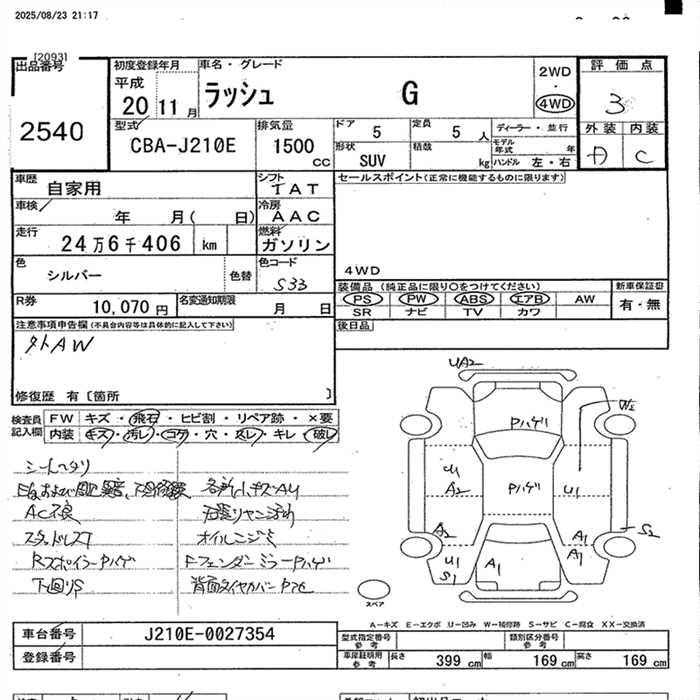 2025/08/23 21:17
[2093]
出品番号
2540
初度登録年月
平成
20 11 月
車名・グレード
ラッシュ G
2WD
・
4WD
評価点
3
外装 内装
C
型式
CBA-J210E
排気量
1500
cc
ドア
5
定員
5 人
形状
SUV
積載
kg
ディーラー・並行
モデル年式 年
ハンドル 左・右
車歴
自家用
シフト
IAT
セールスポイント(正常に機能するものに限ります)
4WD
車検
年 月( 日)
冷房
AAC
走行
24万6千406 km
燃料
ガソリン
色
シルバー
色替
色コード
S33
装備品(純正品に限り○をつけてください)
PS PW ABS エアB AW
SR ナビ TV カワ
新車保証書
有・無
R券
10,070円
名変通知期限
月 日
後日品
注意事項申告欄(不具合内容等は具体的に記入して下さい)
外AW
修復歴 有〔箇所 〕
検査員記入欄
FW キズ・飛石・ヒビ割・リペア跡・×要
内装 キズ・汚レ・コゲ・穴・スレ・キレ・破レ
シートヘタリ
AC不良
スタッドレス
RスポイラーPハゲ
下回りS
各所小キズAU
オイルニジミ
FフェンダーミラーPハゲ
UA2
Pハゲ
Pハゲ
U1
A2
U1
A2
U1
S1
A1
A1
A1
S2
スペア
A-キズ E-エクボ U-凹み W-補修跡 S-サビ C-腐食 XX-交換済
車台番号
J210E-0027354
登録番号
型式指定番号
参考
類別区分番号
参考
車庫証明用
参考
長さ 399 cm 幅 169 cm 高さ 169 cm